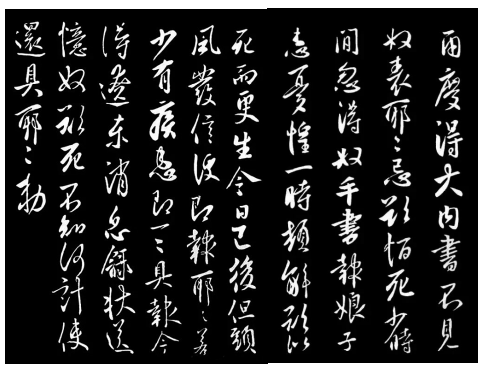 兩度得大內書不見
奴表耶〻忌欲恒死少時
間忽得奴手書報娘子
恙憂惶一時頓解欲似
死而更生今日已後但頭
風發信便即報耶〻若
少有疾患即一〻具報今
得遼東消息錄狀送
憶奴欲死不知何計使
還具耶〻敕